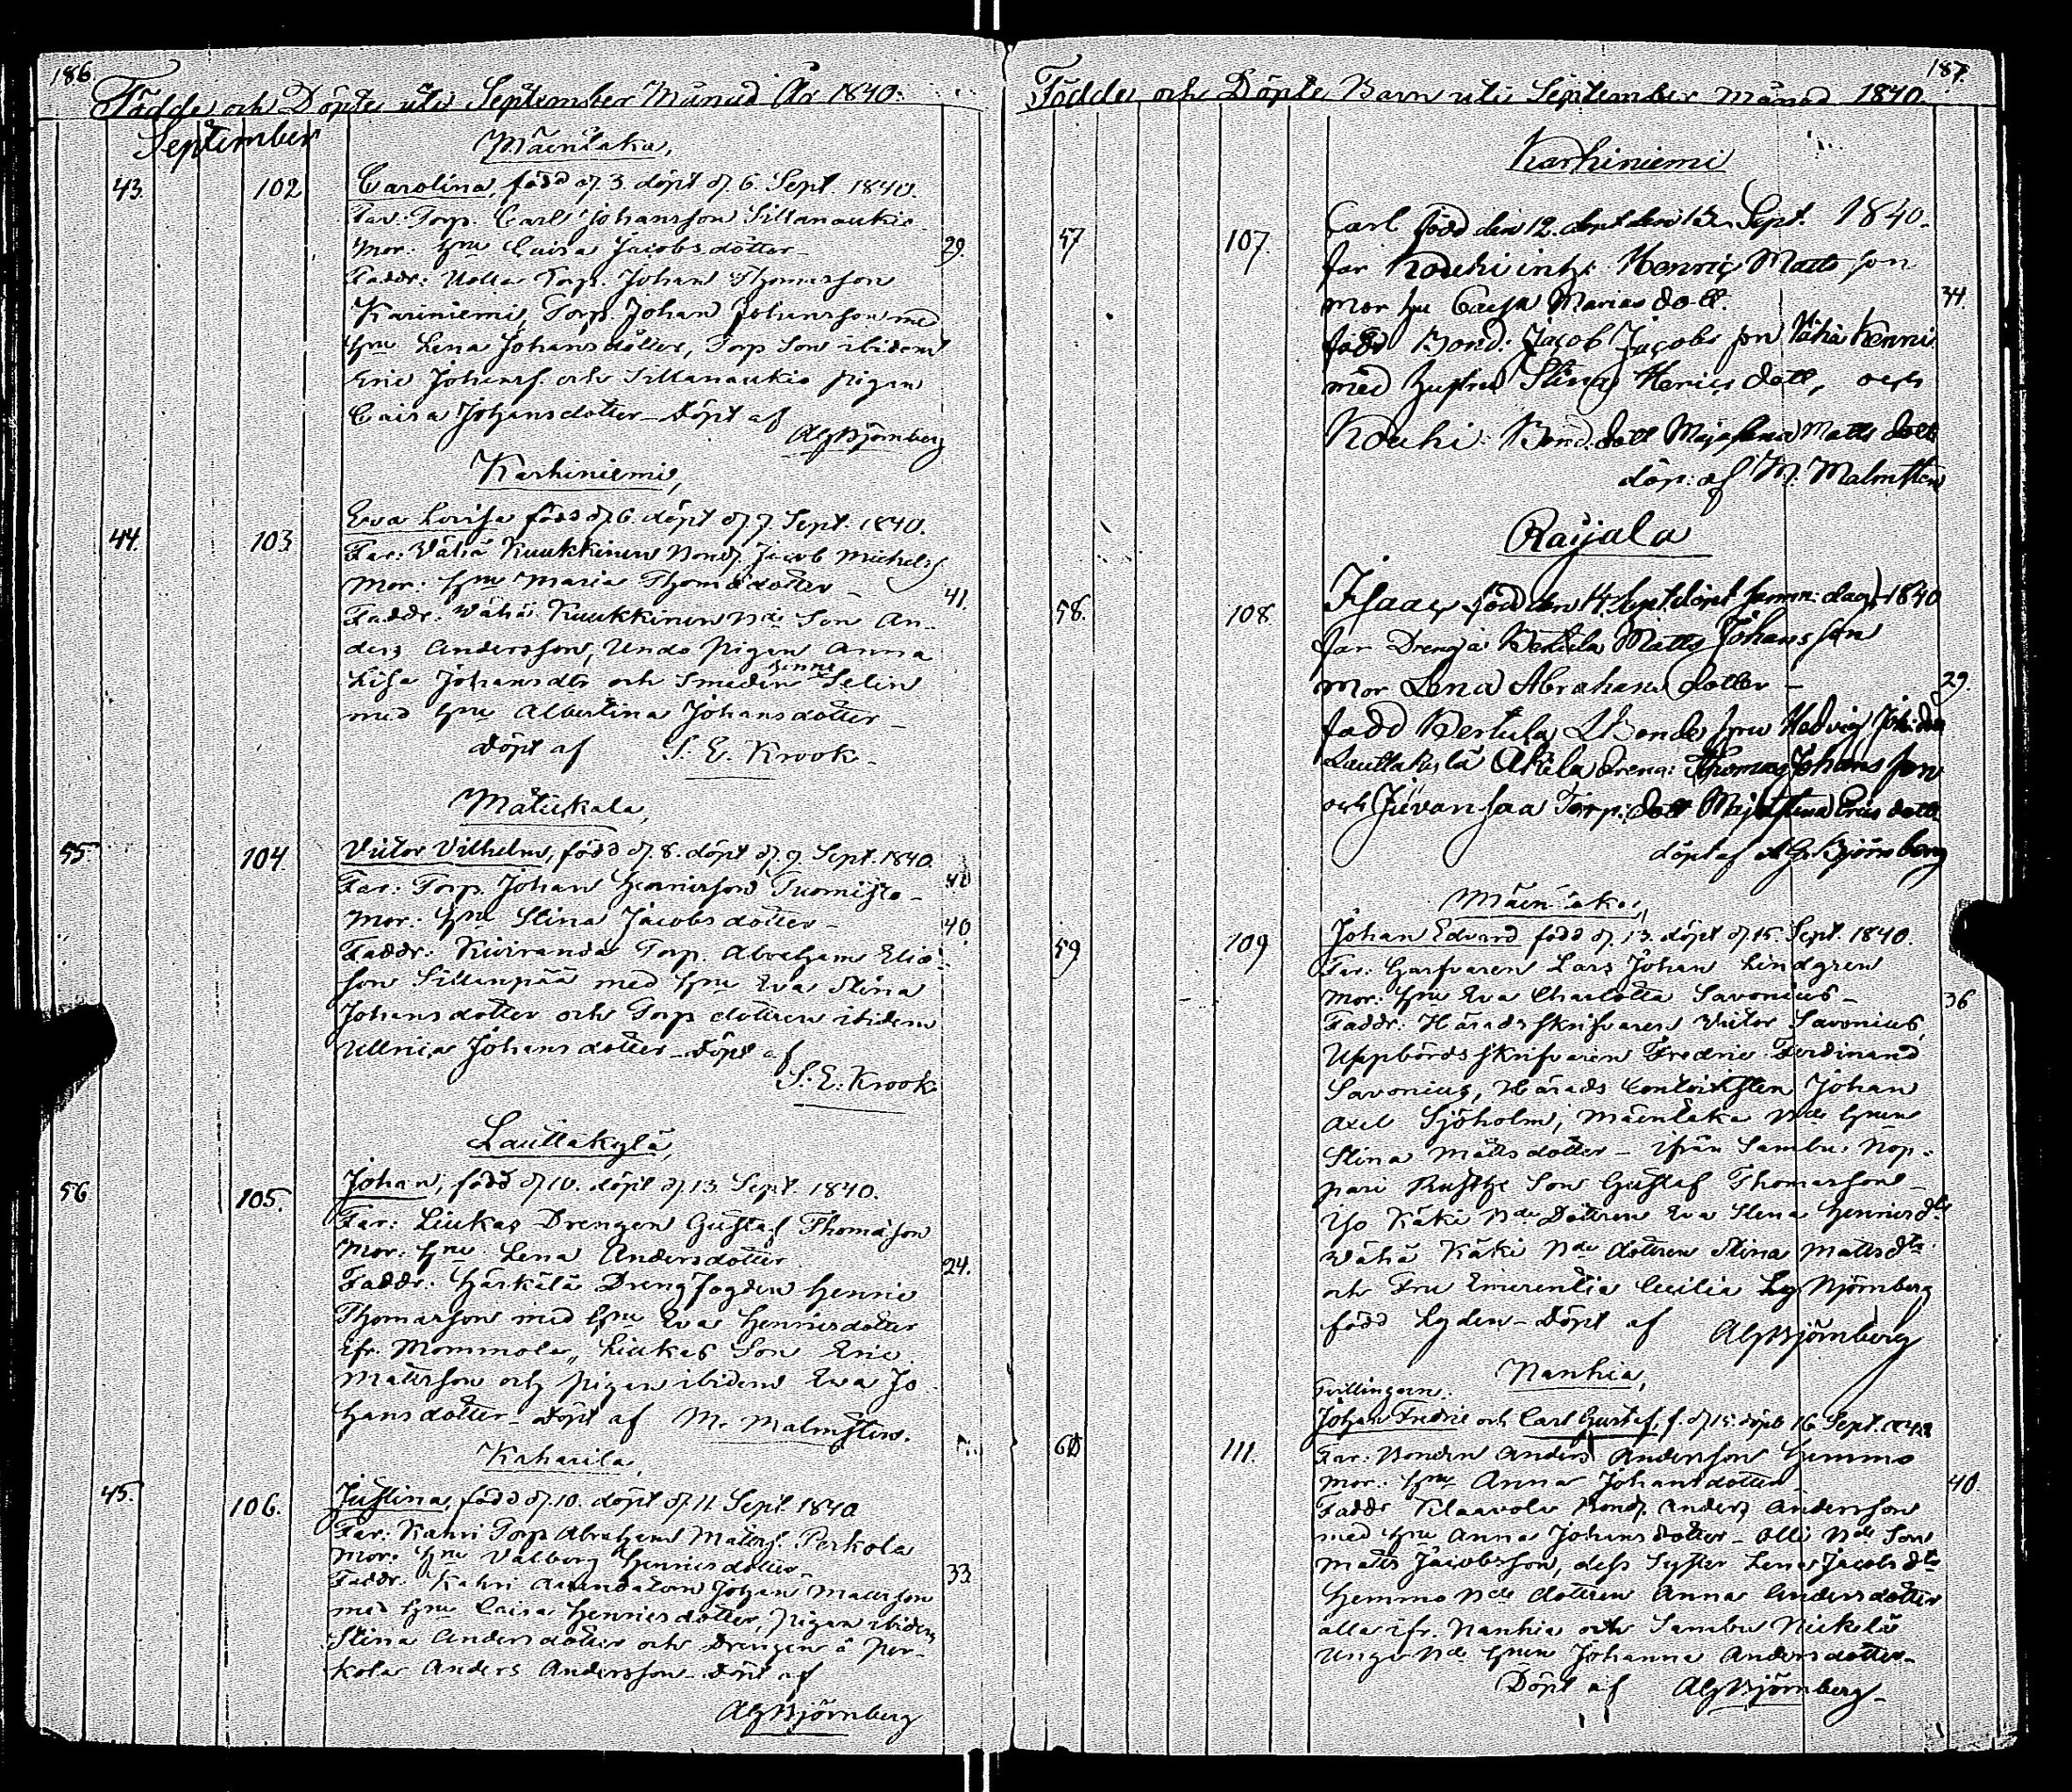 186.
Födde och Döpte uti September Månad År 1840.
September
Mäenlaka,
43. 102 Carolina, född d. 3. döpt d. 6. Sept. 1840.
Far: Torp. Carl Johansson Sillanaukio
Mor: Hru Caisa Jacobsdotter 29.
Faddr: Torp. Johan Thomasson
Kariniemi, Torp. Johan Johansson med
Hru Lena Johansdotter, Torp Son ibidem
Eric Johanss. och Sillanaukio pigan
Caisa Johansdotter _ Döpt af
AGBjörnberg
Karhiniemi,
44. 103. Eva Lovisa född d. 6. döpt d. 7. Sept. 1840.
Far: Vähä Kuukkinen Bond. Jacob Michels
Mor: Hru Maria Thomsdotter _ 41.
Faddr: Vähä Kuukkinen Nde Son An-
ders Andersson, Undo pigan Anna
Lisa Johansdtr och Smeden Selin
med Hru Albertina Johansdotter _
Döpt af S. E. Krook.
Mätikala,
55. 104. Victor Vilhelm, född d. 8. döpt d. 9. Sept. 1840. 40
Far: Torp. Johan Henricsson Tuomisto _
Mor: Hru Stina Jacobsdotter _ 40
Faddr: Kiviranda Torp. Abraham Elia-
son Sillanpää med Hru Eva Stina
Johansdotter och Torp dottren ibidem
Ullrica Johansdotter _ Döpt af
S. E. Krook
Lauttakylä,
56 105. Johan, född d. 10. döpt d. 13 Sept. 1840.
Far: Liukas Drengen Gustaf Thomasson
Mor: Hru Lena Andersdotter 24.
Faddr: Härkälä Drengfogden Henric
Thomasson med Hru Eva Henricsdotter
ifr. Mommola, Liukas Son Eric
Mattsson och pigan ibidem Eva Jo-
hansdotter _ Döpt af M. Malmsten.
Kaharila
45. 106. Justina, född d. 10. döpt d. 11. Sept. 1840
Far: Kahri Torp Abraham Matts. Perkola
Mor: Hru Valborg Henricsdotter _ 33
Faddr: Kahri Arrendatorn Johan Mattsson
med Hru Caisa Henricsdotter, pigan ibidem
Stina Andersdotter och Drengen å Per-
kola Anders Andersson _ Döpt af
AGBjörnberg
187.
Födde och Döpte Barn uti September Månad 1840.
Karhiniemi
57 107. Carl född den 12. döpt den 13 Sept. 1840.
far Kouhi Henric Matts son
mor hu Caysa Marias dott. 34.
fadd Bond: Jacob Jacobs son Vähä Kenni
med hustru Stina Henrics dott, och
Kouhi Bond. dott Maja Lena Matts dott
döp: af M: Malmsten
Raijala
58. 108 Isaac född den 14 Sept döpt samm: dag 1840
far Dreng å Bertula Matts Johans son
mor Lena Abrahams dotter _ 29.
fadd Bertula Bonde hru Hedvig Joh: dott
Lauttakylä Akila Dreng: Thomas Johans son
och Juvansaa Torp: dott Maja Stina Erics dott
döpt af AGBjörnberg
Mäenlaka,
59 109 Johan Edvard född d. 13. döpt d. 15. Sept. 1840.
Far: Garfvaren Lars Johan Lindgren
Mor: Hru Eva Charlotta Savonius _ 36
Faddr: Häradsskrifvaren Victor Savonius,
Uppbördsskrifvaren Fredric Ferdinand
Savonius, Härads Contoristen Johan
Axel Sjöholm, Mäenlaka Nde Hrun
Stina Mattsdotter _ ifrån Sambu: Nop-
pari Rusth. Son Gustaf Thomasson _
Iso Käki Nde Dottren Eva Stena Henricsdtr
Vähä Käki Nde dottren Stina Mattsdtr
och Fru Emerentia Cecilia Björnberg
född Lyden _ Döpt af AGBjörnberg
Nanhia,
Tvillingarn.
60 111. Johan Fredric och Carl Gustaf, f. d. 15. döpt 16 Sept. 1840
Far: Bonden Anders Andersson Hemmo
Mor: Hru Anna Johansdotter 40.
Faddr Klaavola Bond. Anders Andersson
med Hru Anna Johansdotter _ Olli Nde Son
Matts Jacobsson, dess Syster Lena Jacobsdtr
Hemmo Nde dottren Anna Andersdotter
alla ifr. Nanhia och Sambu Nickilä
Unga Nde Hrun Johanna Andersdotter _
Döpt af AGBjörnberg _